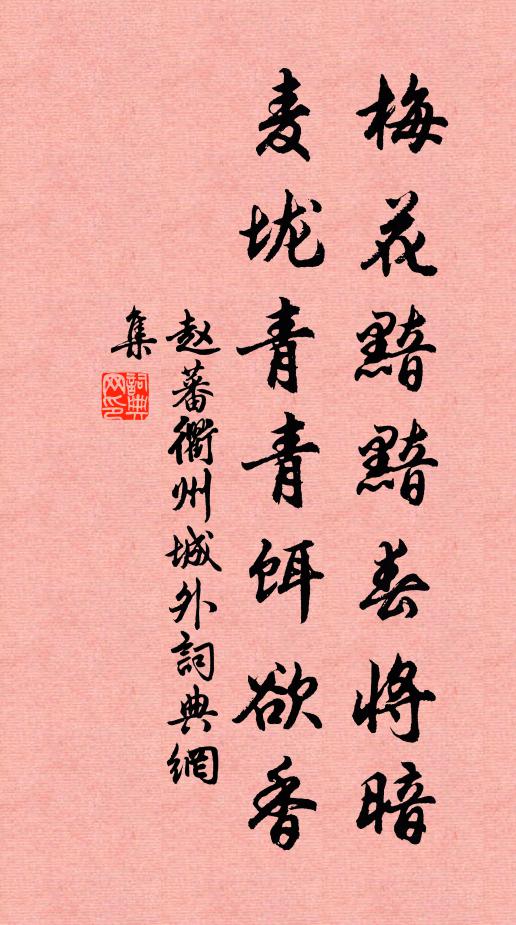 梅花黯黯春将暗
麦垅青青饵欲香
赵蕃衢州城外詞典網
集
詞典
网印